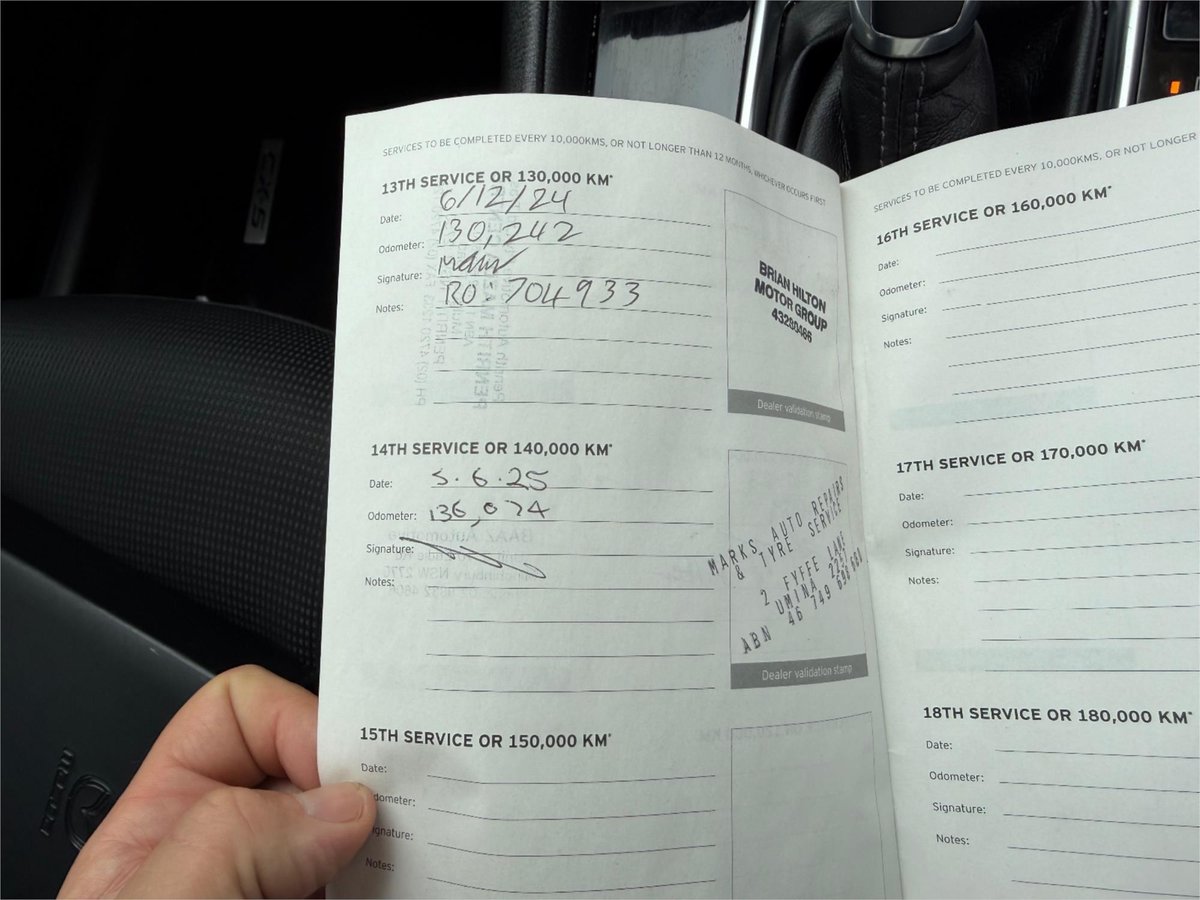 SERVICES TO BE COMPLETED EVERY 10,000KMS, OR NOT LONGER THAN 12 MONTHS, WHICHEVER OCCURS FIRST
13TH SERVICE OR 130,000 KM*
Date: 6/12/24
Odometer: 130,242
Signature:
Notes: RO-704933
BRIAN HILTON
MOTOR GROUP
Dealer validation stamp
14TH SERVICE OR 140,000 KM*
Date: 5.6.25
Odometer: 136,074
Signature:
Notes:
MARKS AUTO REPAIRS
& TYRE SERVICE
2 FYFFE LANE
UMINA 2257
ABN 46 749 698
Dealer validation stamp
15TH SERVICE OR 150,000 KM*
Date:
Odometer:
Signature:
Notes:
SERVICES TO BE COMPLETED EVERY 10,000KMS, OR NOT LONGER
16TH SERVICE OR 160,000 KM*
Date:
Odometer:
Signature:
Notes:
17TH SERVICE OR 170,000 KM*
Date:
Odometer:
Signature:
Notes:
18TH SERVICE OR 180,000 KM*
Date:
Odometer:
Signature:
Notes:
CX-5
mazda